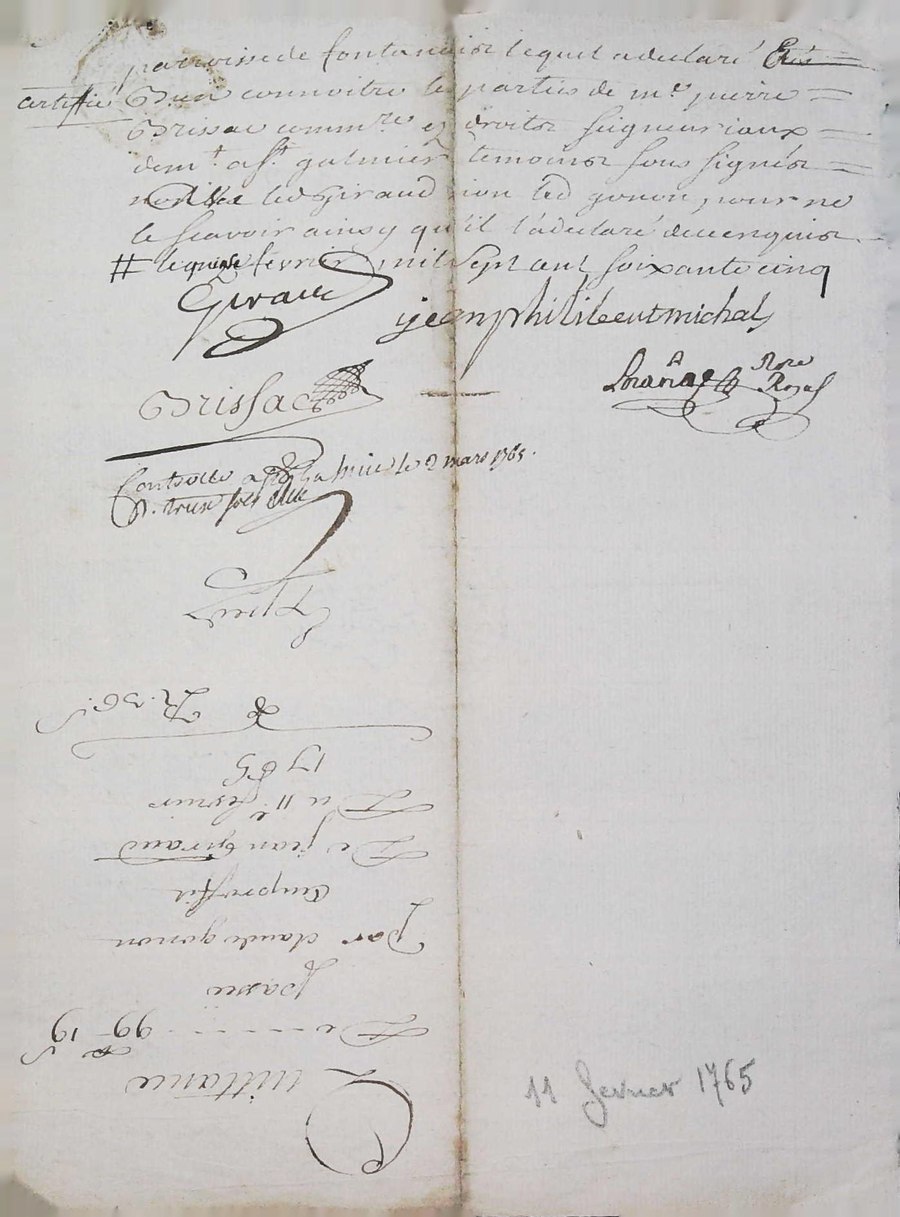 parroisse de fontanais lequel a declaré
certiffié Bien connoitre les parties de me. pierre
Brissac commre. ez droits seigneuriaux
demt. a st. galmier temoins sous signés
led Giraud non led gonon, pour ne
le scavoir ainsy qu'il l'a declaré de ce enquis
# le quinze fevrier mil sept cent soixante cinq
Giraud
jean michal
Brissac
Controllé a st. galmier le 2 mars 1765.
R. treize sols
Quittance
De ---- 99 19 s
passée
par claude gonon
au proffit
De jean Giraud
Du 11e. fevrier
1765
&
R. 36 s
11 fevrier 1765